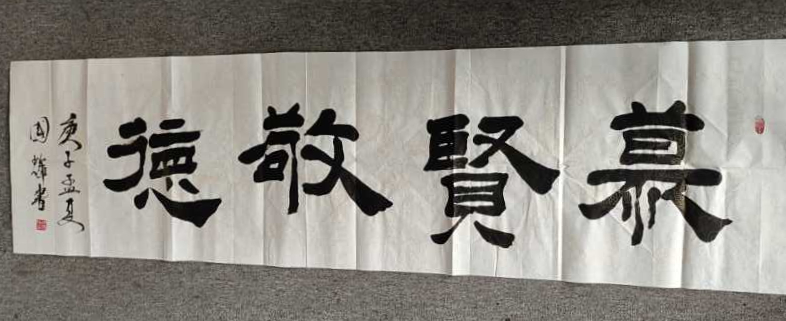 慕賢敬德
庚子孟夏
國輝書